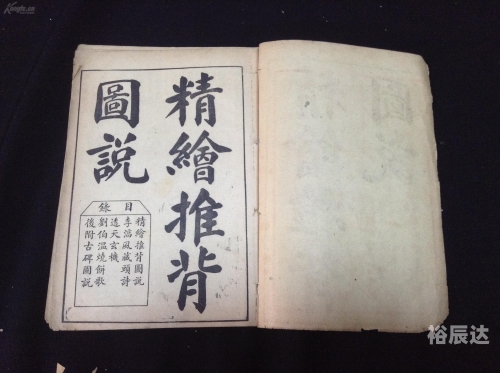 精繪推背
圖說
目錄
精繪推背圖說
李淳風藏頭詩
透天玄機
劉伯溫燒餅歌
後附古碑圖說
裕辰达